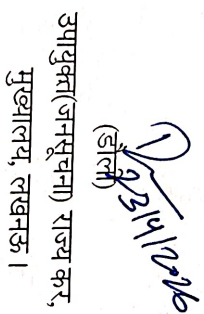 23/4/2026
(डॉली)
उपायुक्त(जनसूचना) राज्य कर,
मुख्यालय, लखनऊ।